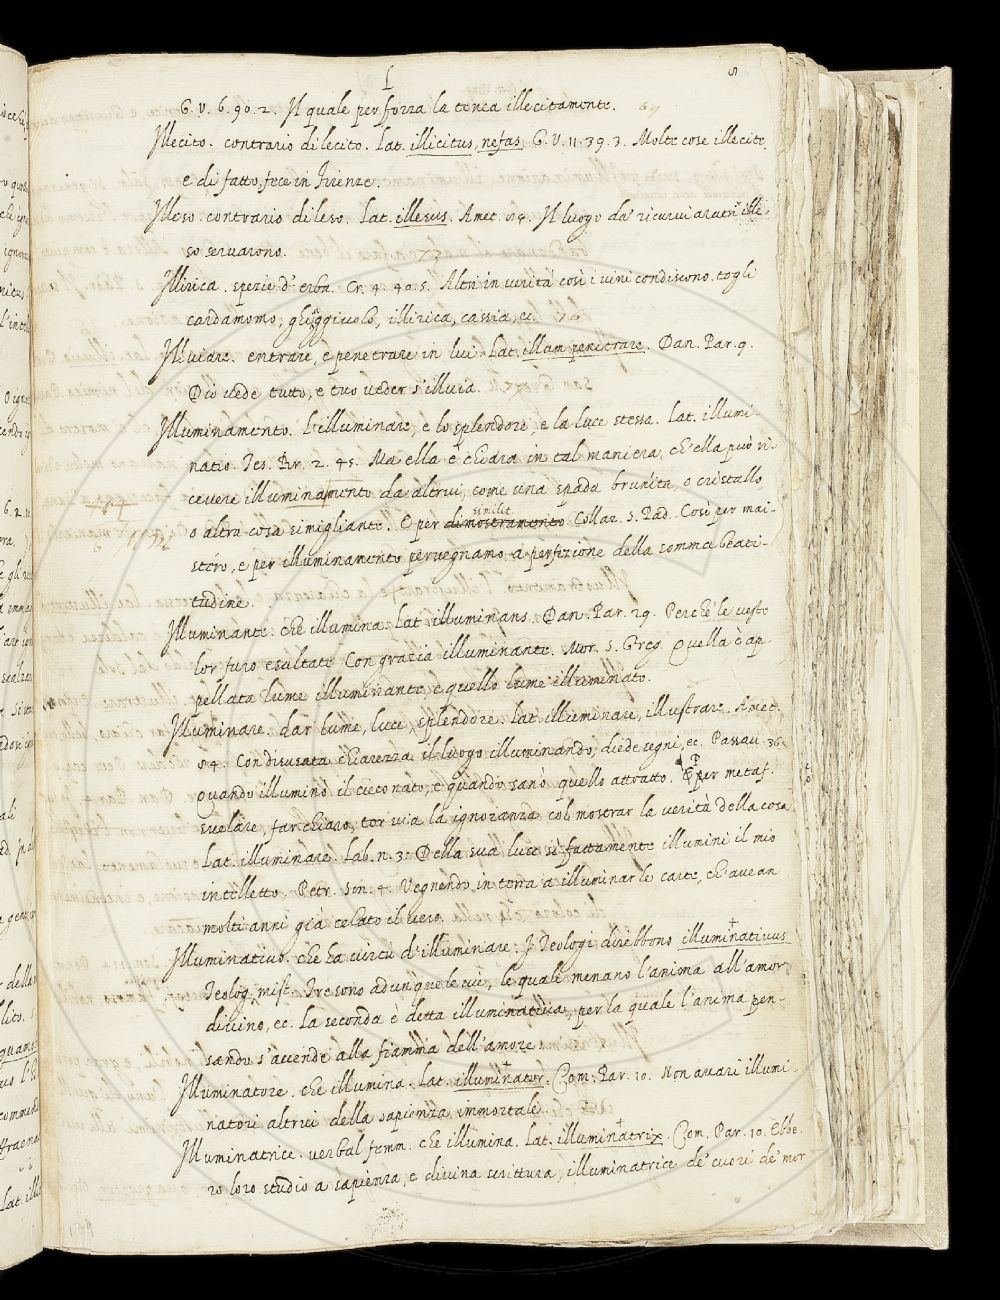 L
8
G. V. 6. 90. 2. Il quale per forza la tenea illecitamente.
Illecito. contrario di lecito. Lat. illicitus, nefas. G. V. 11. 39. 3. Molte cose illecite,
e di fatto, fece in Firenze.
Illeso. contrario di leso. Lat. illesus. Amet. 84. Il luogo da' ricurvi aratri ille-
so servarono.
Illirica. spezie d' erba. Cr. 4. 40. 5. Altri in verità così i vini condiscono. togli
cardamomo, illirica, cassia, ec.
Illuiare. entrare, e penetrare in lui. Lat. illum penetrare. Dan. Par. 9.
Dio vede tutto, e tuo veder s'illuia.
Illuminamento. L'illuminare, e lo splendore, e la luce stessa. Lat. illumi-
natio. Tes. Br. 2. 45. Ma ella è chiara in tal maniera, ch'ella può ri-
cevere illuminamento da altrui, come una spada brunita, o cristallo,
o altra cosa simigliante. E per dimostramento similit. Collaz. S. Pad. Così per mai-
stero, e per illuminamento pervegnamo a perfezione della somma beati-
tudine.
Illuminante. che illumina. Lat. illuminans. Dan. Par. 29. Perchè le viste
lor furo esaltate Con grazia illuminante. Mor. S. Greg. Quella è ap-
pellata lume illuminante, e quello lume illuminato.
Illuminare. dar lume, luce, splendore. Lat. illuminare, illustrare. Amet.
84. Con disusata chiarezza il luogo illuminando, diede segni, ec. Passav. 36.
Quando illuminò il cieco nato, e quando sanò quello attratto. P per metaf.
svelare, far chiaro, tor via la ignoranza col mostrar la verità della cosa
Lat. illuminare. Lab. n. 3. Della sua luce sì fattamente illumini il mio
intelletto. Petr. Son. 4. Vegnendo in terra a illuminar le carte, ch' avean
molti anni già celato il vero.
Illuminativo. che ha virtù d' illuminare. I Teologi direbbono illuminativus
Teolog. mist. Tre sono adunque le vie, le quale menano l'anima all'amor
divino, ec. La seconda è detta illuminativa, per la quale l'anima pen-
sando s'accende alla fiamma dell'amore.
Illuminatore. che illumina. Lat. illuminator. Com. Par. 10. Non avari illumi-
natori altrui della sapienza immortale.
Illuminatrice. verbal femm. che illumina. Lat. illuminatrix. Com. Par. 10. Ebbe-
ro loro studio a sapienza, e divina scrittura, illuminatrice de' cuori de' mor